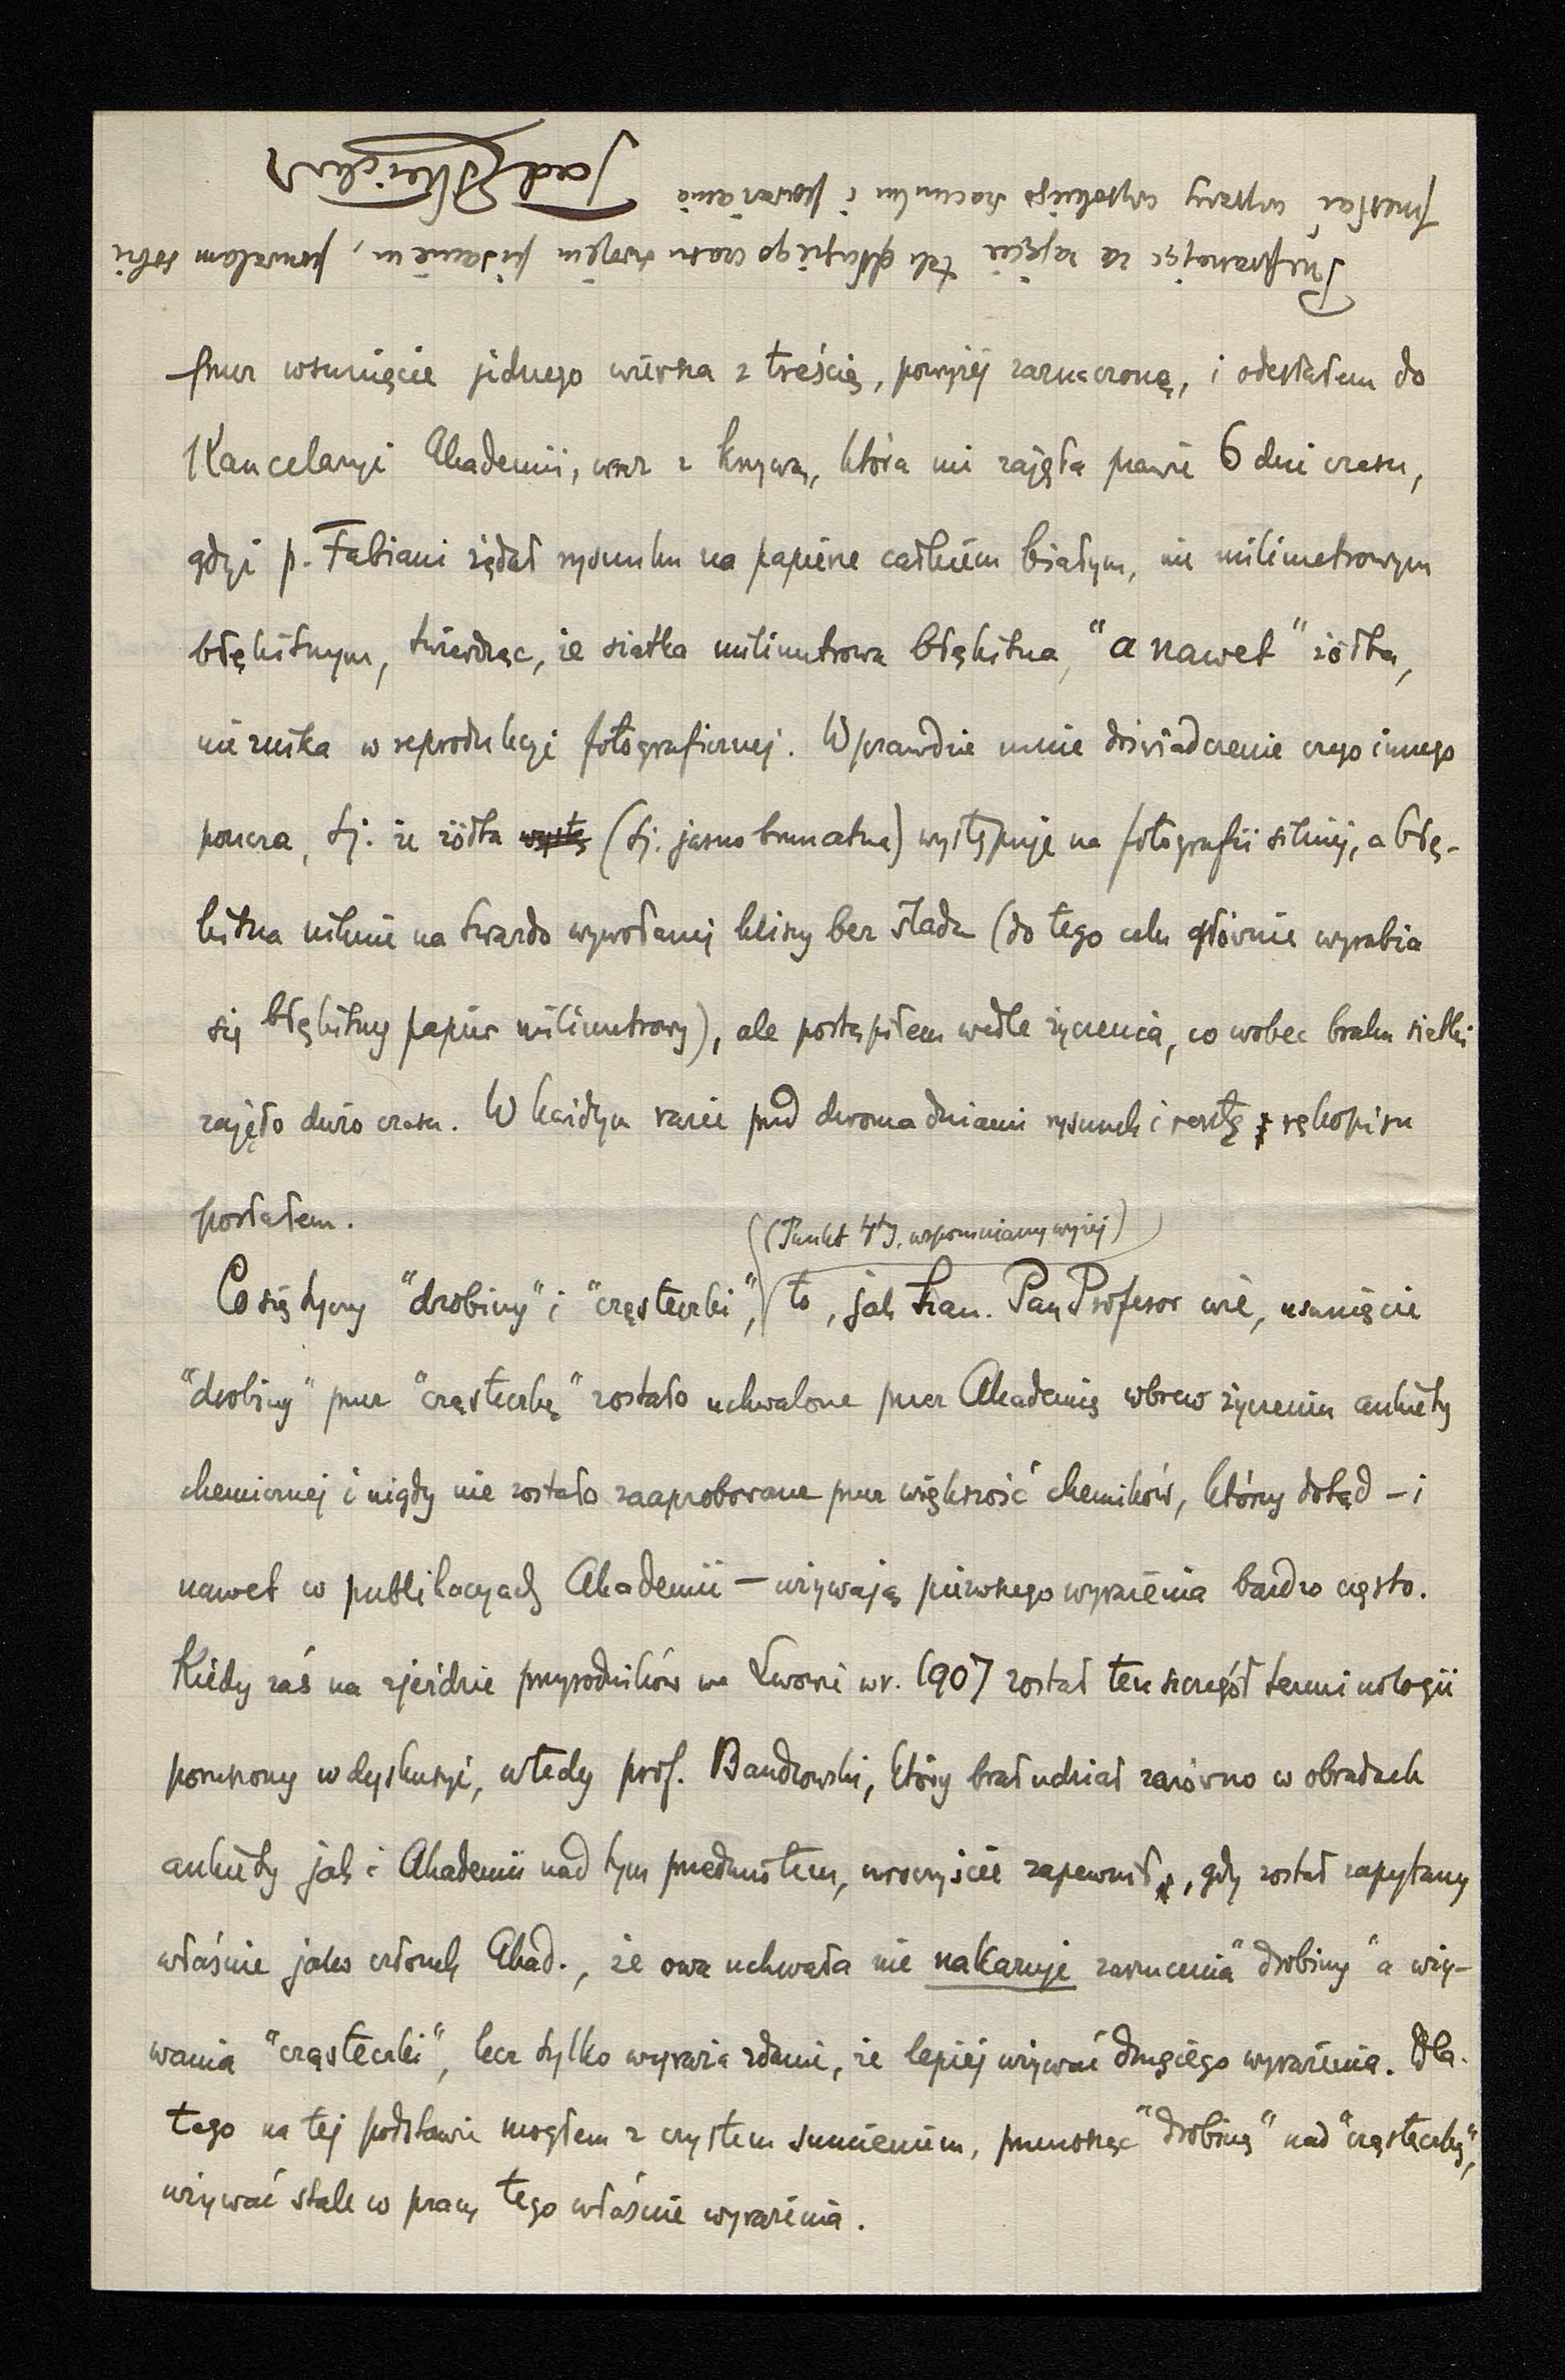 przez wsunięcie jednego wiersza z treścią, powyżej zaznaczoną, i odesłałem do
Kancelaryi Akademii, wraz z krzywą, która mi zajęła prawie 6 dni czasu,
gdyż p. Fabiani żądał rysunku na papierze całkiem białym, nie milimetrowym
błękitnym, twierdząc, że siatka milimetrowa błękitna, "a nawet" żółta,
nie znika w reprodukcyi fotograficznej. Wprawdzie mnie doświadczenie czego innego
poucza, tj. że żółta (tj. jasno brunatna) występuje na fotografii silniej, a błę-
kitna niknie na twardo wywołanej kliszy bez śladu (do tego celu głównie wyrabia
się błękitny papier milimetrowy), ale postąpiłem wedle życzenia, co wobec braku siatki
zajęło dużo czasu. W każdym razie przed dwoma dniami rysunek i resztę rękopisu
posłałem.
(Punkt 4ty, wspomniany wyżej)
Co się tyczy "drobiny" i "cząsteczki", to, jak Szan. Pan Profesor wie, usunięcie
"drobiny" przez "cząsteczkę" zostało uchwalone przez Akademię wbrew życzeniu ankiety
chemicznej i nigdy nie zostało zaaprobowane przez większość chemików, którzy dotąd – i
nawet w publikacyach Akademii – używają pierwszego wyrażenia bardzo często.
Kiedy zaś na zjeździe przyrodników we Lwowie w r. 1907 został ten szczegół terminologii
poruszony w dyskusyi, wtedy prof. Bandrowski, który brał udział zarówno w obradach
ankiety jak i Akademii nad tym przedmiotem, uroczyście zapewnił, gdy został zapytany
właśnie jako członek Akad., że owa uchwała nie nakazuje zarzucenia "drobiny" a uży-
wania "cząsteczki", lecz tylko wyraża zdanie, że lepiej używać drugiego wyrażenia. Dla-
tego na tej podstawie mogłem z czystem sumieniem, przenosząc "drobinę" nad "cząsteczkę",
używać stale w pracy tego właśnie wyrażenia.
Przepraszając za zajęcie tak długiego czasu swojem pisaniem, pozwalam sobie
przesłać wyrazy wysokiego szacunku i poważania